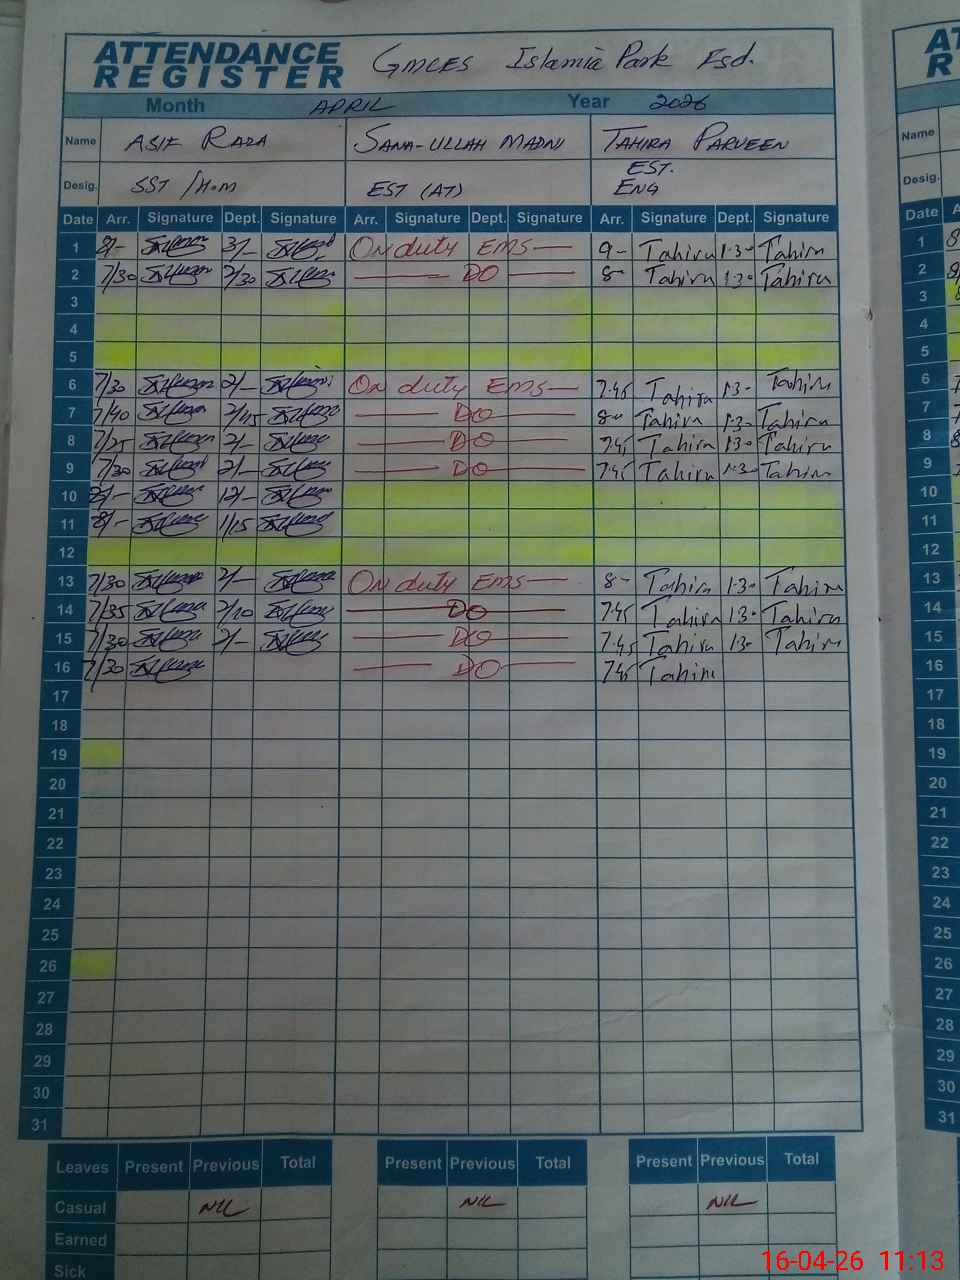 ATTENDANCE REGISTER GMCES Islamia Park Fsd.
Month APRIL Year 2026
Name ASIF RAZA SANA-ULLAH MADNI TAHIRA PARVEEN
Desig. SST /H.M EST (AT) EST. ENG
Date Arr. Signature Dept. Signature Arr. Signature Dept. Signature Arr. Signature Dept. Signature
1 8/- 3/- On duty EMS 9- Tahira 1-30 Tahira
2 7/30 2/30 DO 8- Tahira 1-30 Tahira
3
4
5
6 7/30 2/- On duty EMS 7.45 Tahira 1-30 Tahira
7 7/40 2/45 DO 8- Tahira 1-30 Tahira
8 7/25 2/- DO 7.45 Tahira 1-30 Tahira
9 7/30 2/- DO 7.45 Tahira 1-30 Tahira
10 12/-
11 8/- 1/15
12
13 7/30 2/- On duty EMS 8- Tahira 1-30 Tahira
14 7/35 2/10 DO 7.45 Tahira 1-30 Tahira
15 7/30 2/- DO 7.45 Tahira 1-30 Tahira
16 7/30 DO 7.45 Tahira
17
18
19
20
21
22
23
24
25
26
27
28
29
30
31
Leaves Present Previous Total Present Previous Total Present Previous Total
Casual NIL NIL NIL
Earned
Sick
16-04-26 11:13
AT
R
Name
Desig.
Date A
1
2
3
4
5
6
7
8
9
10
11
12
13
14
15
16
17
18
19
20
21
22
23
24
25
26
27
28
29
30
31